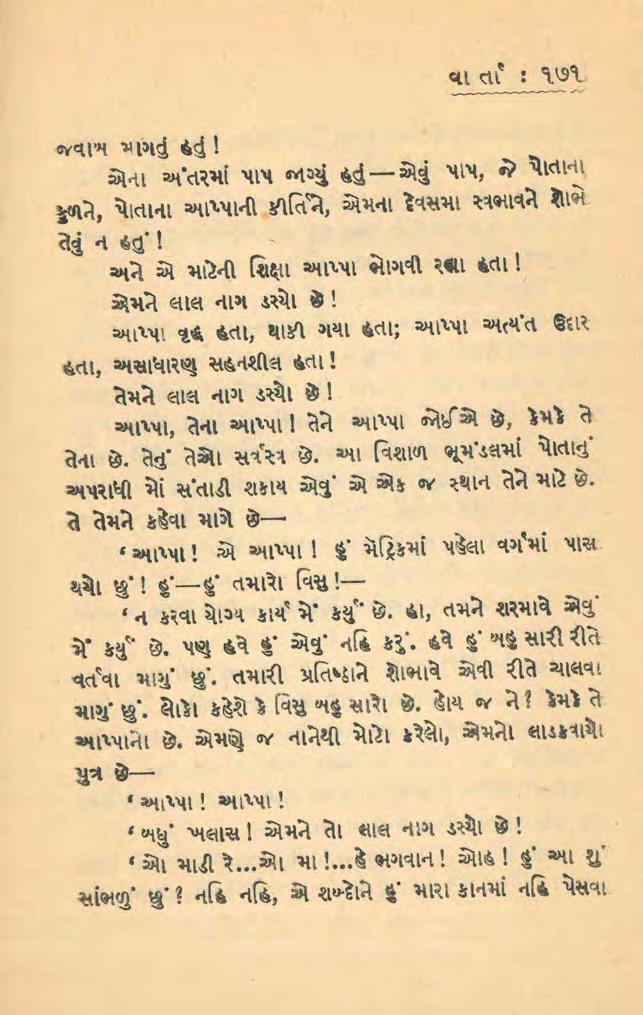 વાર્તા : ૧૭૧
જવાબ માગતું હતું !
એના અંતરમાં પાપ જાગ્યું હતું—એવું પાપ, જે પોતાના
કુળને, પોતાના આપ્પાની કીર્તિને, એમના દેવસમા સ્વભાવને શોભે
તેવું ન હતું !
અને એ માટેની શિક્ષા આપ્પા ભોગવી રહ્યા હતા !
એમને લાલ નાગ ડસ્યો છે !
આપ્પા વૃદ્ધ હતા, થાકી ગયા હતા; આપ્પા અત્યંત ઉદાર
હતા, અસાધારણ સહનશીલ હતા !
તેમને લાલ નાગ ડસ્યો છે !
આપ્પા, તેના આપ્પા ! તેને આપ્પા જોઈએ છે, કેમકે તે
તેના છે. તેનું તેઓ સર્વસ્વ છે. આ વિશાળ ભૂમંડલમાં પોતાનું
અપરાધી મોં સંતાડી શકાય એવું એ એક જ સ્થાન તેને માટે છે.
તે તેમને કહેવા માગે છે—
‘ આપ્પા ! એ આપ્પા ! હું મૅટ્રિકમાં પહેલા વર્ગમાં પાસ
થયો છું ! હું—હું તમારો વિસુ !—
‘ ન કરવા યોગ્ય કાર્ય મેં કર્યું છે. હા, તમને શરમાવે એવું
મેં કર્યું છે. પણ હવે હું એવું નહિ કરું. હવે હું બહુ સારી રીતે
વર્તવા માગું છું. તમારી પ્રતિષ્ઠાને શોભાવે એવી રીતે ચાલવા
માગું છું. લોકો કહેશે કે વિસુ બહુ સારો છે. હોય જ ને ? કેમકે તે
આપ્પાનો છે. એમણે જ નાનેથી મોટો કરેલો, એમનો લાડકવાયો
પુત્ર છે—
‘ આપ્પા ! આપ્પા !
‘ બધું ખલાસ ! એમને તો લાલ નાગ ડસ્યો છે !
‘ ઓ માડી રે...ઓ મા !...હે ભગવાન ! ઓહ ! હું આ શું
સાંભળું છું ? નહિ નહિ, એ શબ્દોને હું મારા કાનમાં નહિ પેસવા